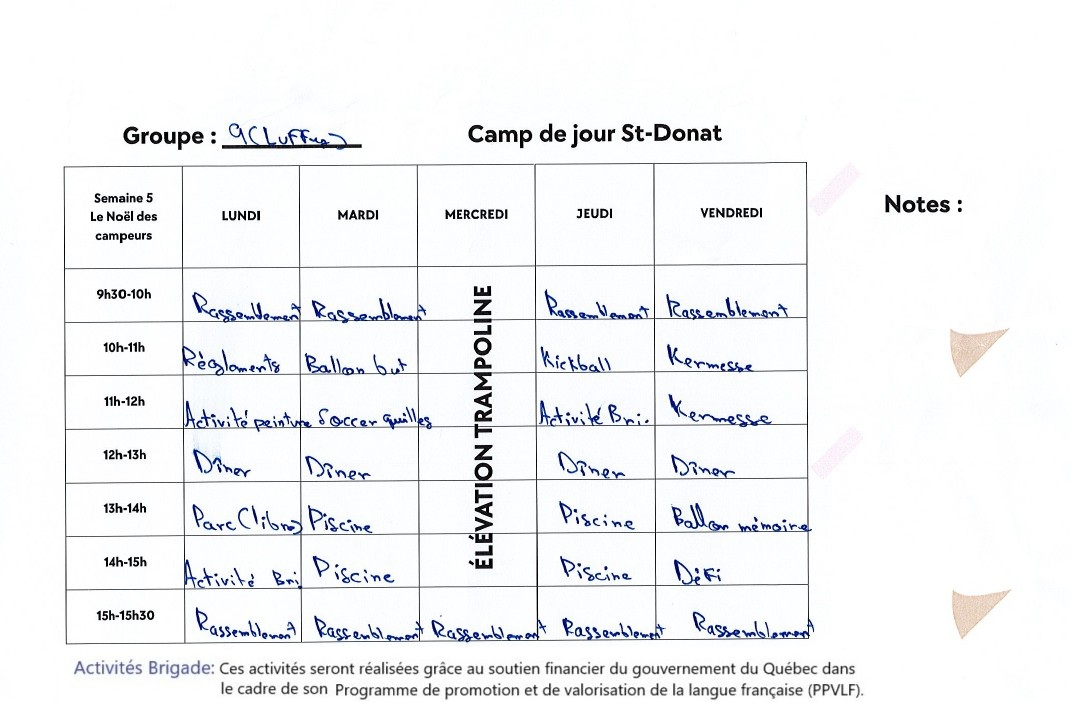 Groupe : 9(Luffy) Camp de jour St-Donat
Notes :
Semaine 5 Le Noël des campeurs LUNDI MARDI MERCREDI JEUDI VENDREDI
9h30-10h Rassemblement Rassemblement Rassemblement Rassemblement
10h-11h Règlements Ballon but Kickball Kermesse
11h-12h Activité peinture Soccer quilles Activité Bri. Kermesse
12h-13h Dîner Dîner Dîner Dîner
13h-14h Parc (libre) Piscine Piscine Ballon mémoire
14h-15h Activité Bri Piscine Piscine Défi
ÉLÉVATION TRAMPOLINE
15h-15h30 Rassemblement Rassemblement Rassemblement Rassemblement Rassemblement
Activités Brigade: Ces activités seront réalisées grâce au soutien financier du gouvernement du Québec dans
le cadre de son Programme de promotion et de valorisation de la langue française (PPVLF).